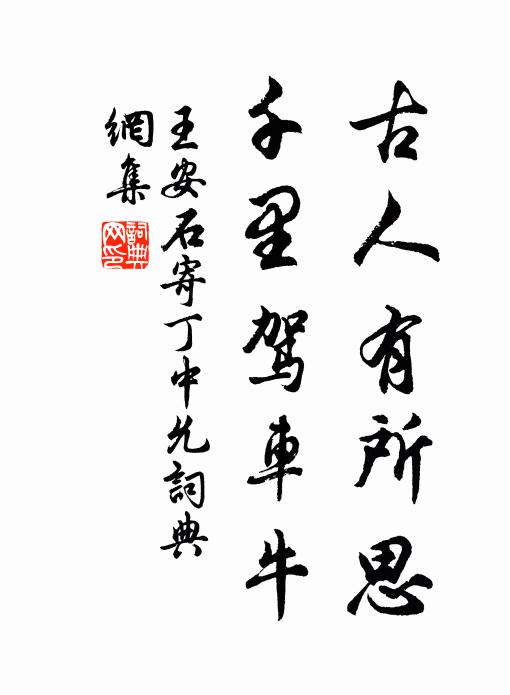 古人有所思
千里駕車牛
王安石寄丁中允詞典
網集
詞典
网印